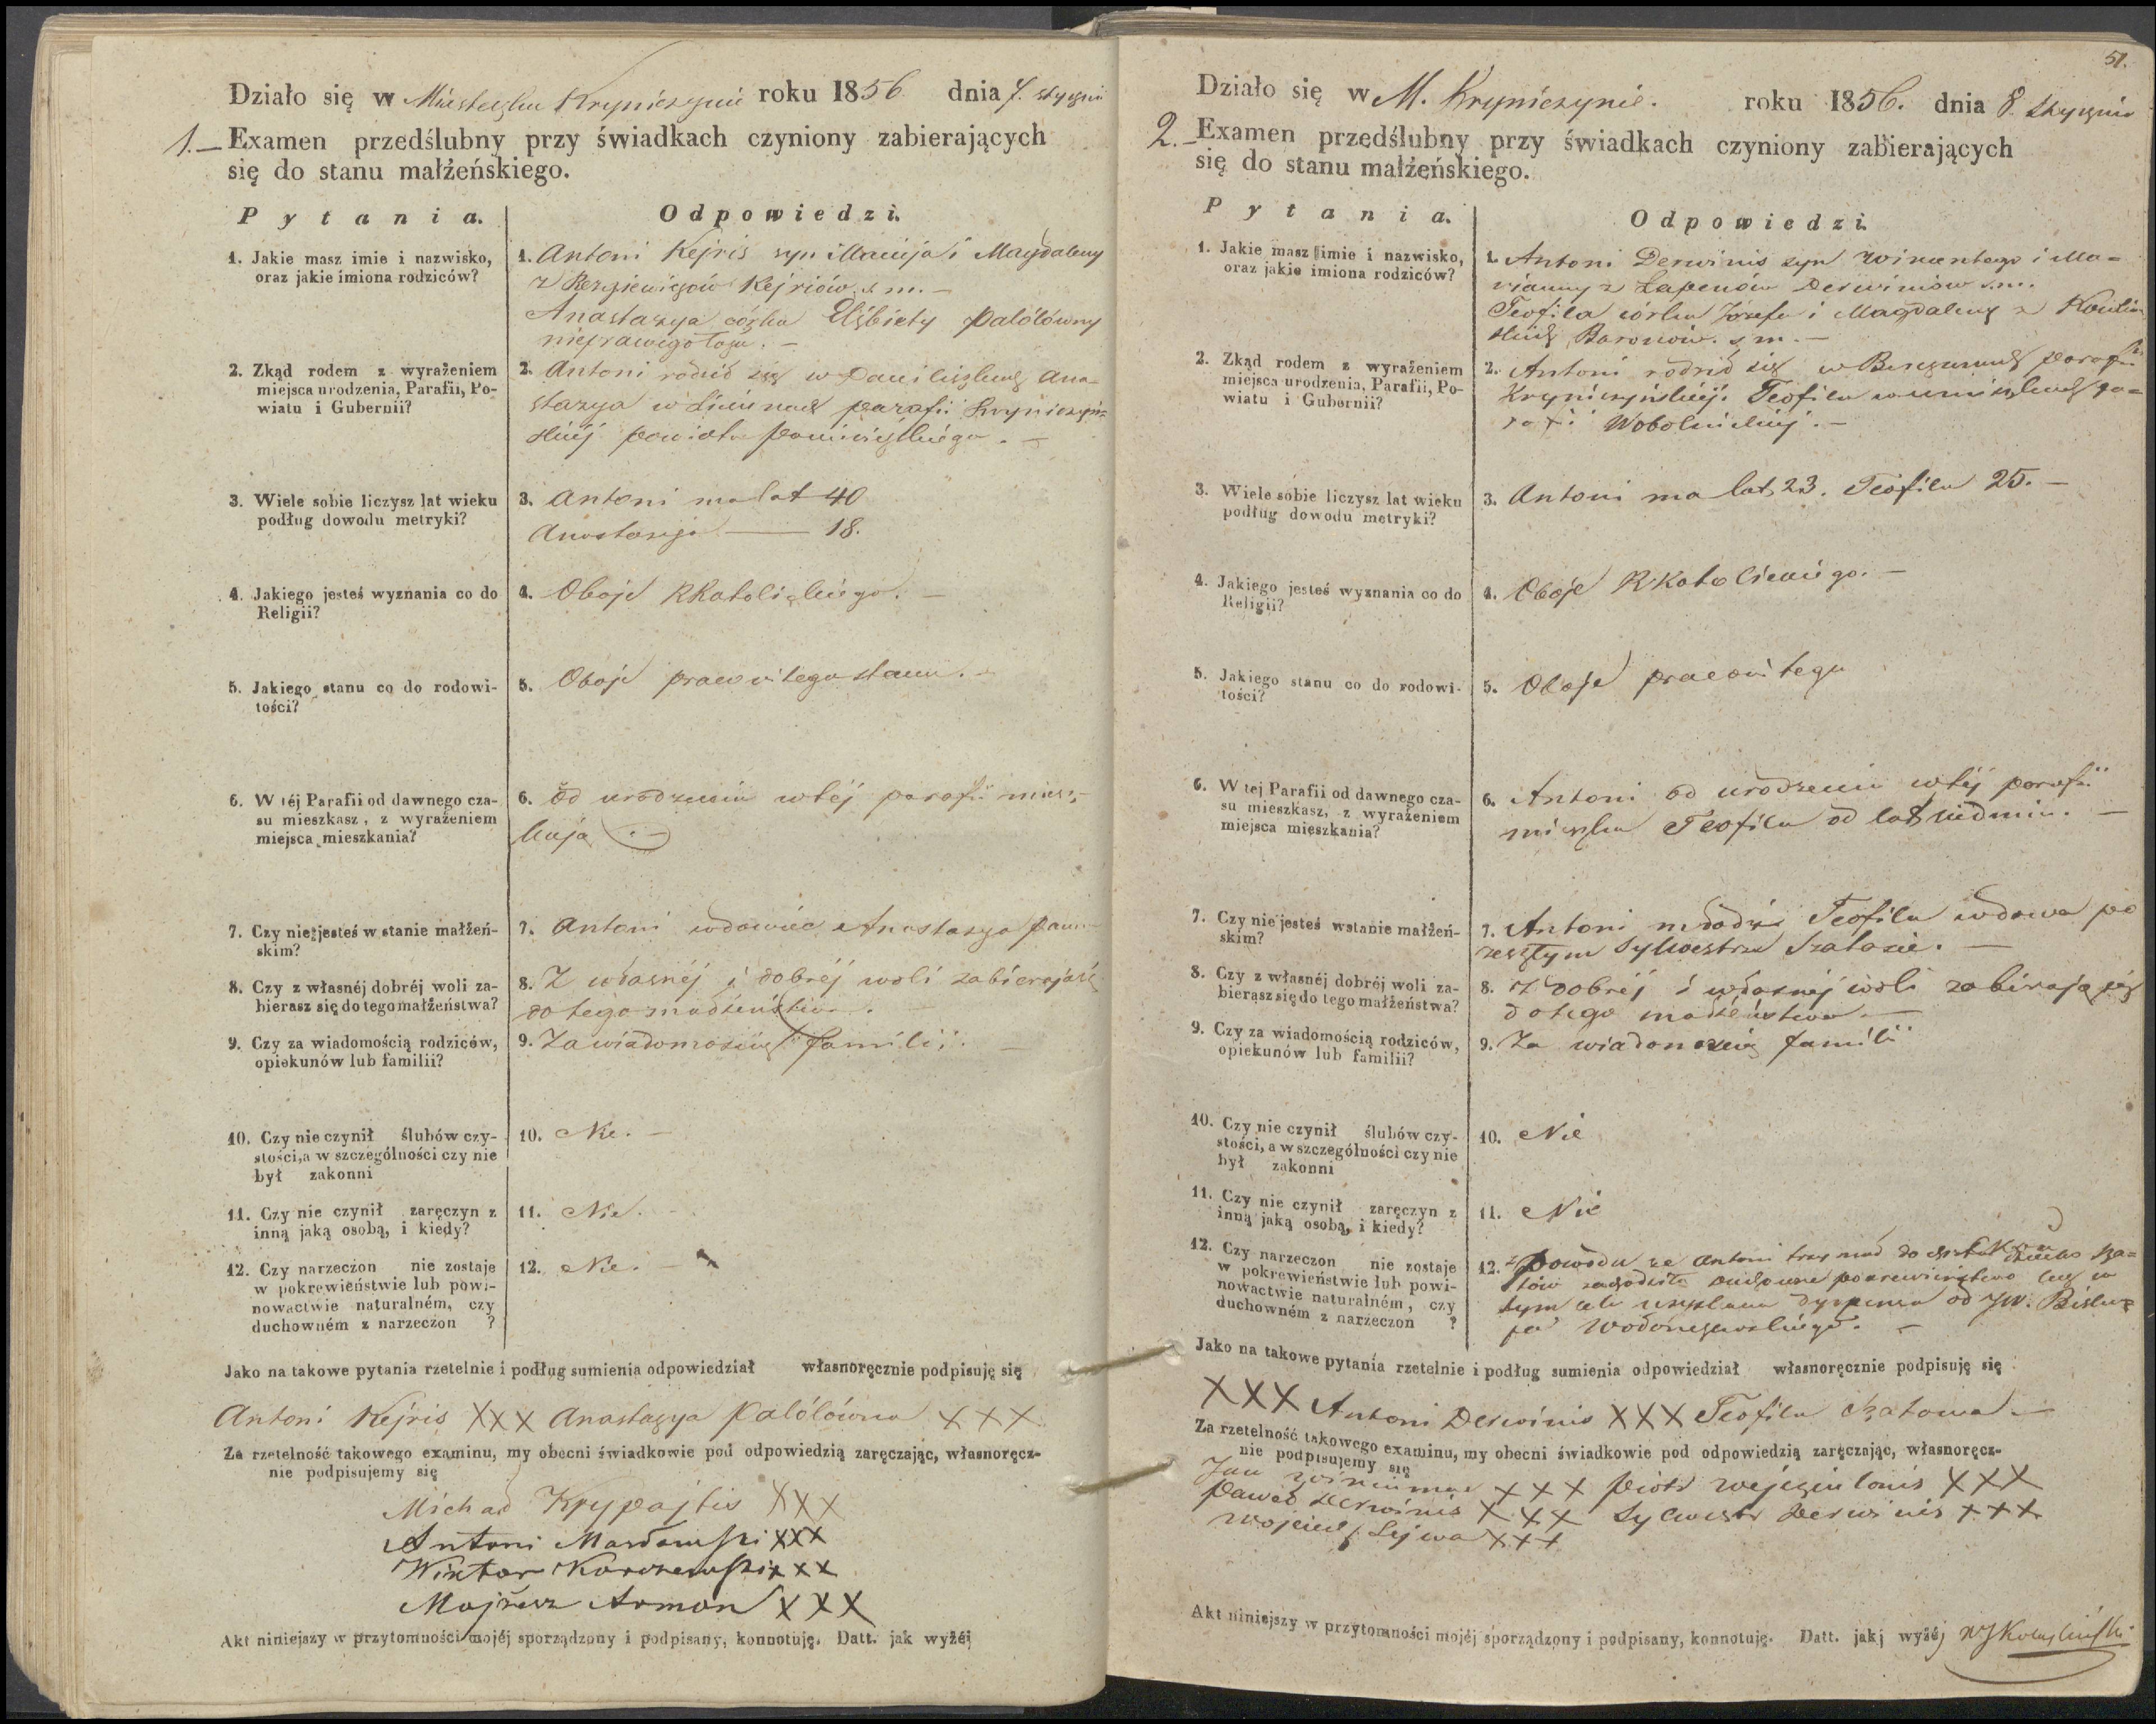 Działo się w Miasteczku Kryniczynie roku 1856 dnia 7. stycznia
1.— Examen przedślubny przy świadkach czyniony zabierających
się do stanu małżeńskiego.
Pytania.
Odpowiedzi.
1. Jakie masz imie i nazwisko,
oraz jakie imiona rodziców?
1. Antoni Kejris syn Macieja i Magdaleny
z Kejriów s. m. —
Anastazya córka Elżbiety Palólówny
nieprawego łoża. —
2. Zkąd rodem z wyrażeniem
miejsca urodzenia, Parafii, Po-
wiatu i Gubernii?
2. Antoni rodził się w Ana-
stazya w parafii Kryniczyń-
skiéj powiatu Poniewiezkiego. —
3. Wiele sobie liczysz lat wieku
podług dowodu metryki?
3. Antoni ma lat 40
Anastazya — 18.
4. Jakiego jesteś wyznania co do
Religii?
4. Oboje RKatolickiego. —
5. Jakiego stanu co do rodowi-
tości?
5. Oboje prawowitego stanu. —
6. W téj Parafii od dawnego cza-
su mieszkasz, z wyrażeniem
miejsca mieszkania?
6. Od urodzenia w téj parafii miesz-
kają. —
7. Czy nie jesteś w stanie małżeń-
skim?
7. Antoni wdowiec Anastazya panna
8. Czy z własnéj dobréj woli za-
bierasz się do tego małżeństwa?
8. Z własnéj i dobréj woli zabierają się
do tego małżeństwa. —
9. Czy za wiadomością rodziców,
opiekunów lub familii?
9. Za wiadomością familii. —
10. Czy nie czynił ślubów czy-
stości, a w szczególności czy nie
był zakonni
10. Nie. —
11. Czy nie czynił zaręczyn z
inną jaką osobą, i kiedy?
11. Nie. —
12. Czy narzeczon nie zostaje
w pokrewieństwie lub powi-
nowactwie naturalném, czy
duchowném z narzeczon ?
12. Nie. —
Jako na takowe pytania rzetelnie i podług sumienia odpowiedział własnoręcznie podpisuję się
Antoni Kejris XXX Anastazya Palólówna XXX
Za rzetelność takowego examinu, my obecni świadkowie pod odpowiedzią zaręczając, własnoręcz-
nie podpisujemy się
Michał Krypajtis XXX
Antoni XXX
Wiktor Korzeniewski XXX
Mojżesz Armon XXX
Akt niniejszy w przytomności mojéj sporządzony i podpisany, konnotuję. Datt. jak wyżéj
51.
Działo się w M. Kryniczynie. roku 1856. dnia 8 stycznia
2.— Examen przedślubny przy świadkach czyniony zabierających
się do stanu małżeńskiego.
Pytania.
Odpowiedzi.
1. Jakie masz imie i nazwisko,
oraz jakie imiona rodziców?
1. Antoni Derwinis syn Wincentego i Ma-
rianny z Łapenów Derwinisów s. m.
Teofila córka Józefa i Magdaleny z
Baronów. s. m. —
2. Zkąd rodem z wyrażeniem
miejsca urodzenia, Parafii, Po-
wiatu i Gubernii?
2. Antoni rodził się w parafii
Kryniczyńskiéj. Teofila w pa-
rafii Wobolnickiéj. —
3. Wiele sobie liczysz lat wieku
podług dowodu metryki?
3. Antoni ma lat 23. Teofila 25. —
4. Jakiego jesteś wyznania co do
Religii?
4. Oboje RKatolickiego. —
5. Jakiego stanu co do rodowi-
tości?
5. Oboje prawowitego
6. W tej Parafii od dawnego cza-
su mieszkasz, z wyrażeniem
miejsca mieszkania?
6. Antoni od urodzenia w téj parafii
mieszka Teofila od lat siedmiu. —
7. Czy nie jesteś w stanie małżeń-
skim?
7. Antoni młodzian Teofila wdowa po
zeszłym Sylwestrze Szatasie. —
8. Czy z własnéj dobréj woli za-
bierasz się do tego małżeństwa?
8. Z dobréj i własnéj woli zabierają się
do tego małżeństwa —
9. Czy za wiadomością rodziców,
opiekunów lub familii?
9. Za wiadomością familii
10. Czy nie czynił ślubów czy-
stości, a w szczególności czy nie
był zakonni
10. Nie
11. Czy nie czynił zaręczyn z
inną jaką osobą, i kiedy?
11. Nie
12. Czy narzeczon nie zostaje
w pokrewieństwie lub powi-
nowactwie naturalném, czy
duchowném z narzeczon ?
12. z Powodu że Antoni trzymał do Chrztu Sza-
tów duchowne pokrewieństwo lecz w
tym celu uzyskana dyspensa od JW. Bisku-
pa Wołonczewskiego. —
Jako na takowe pytania rzetelnie i podług sumienia odpowiedział własnoręcznie podpisuję się
XXX Antoni Derwinis XXX Teofila Szatowa —
Za rzetelność takowego examinu, my obecni świadkowie pod odpowiedzią zaręczając, własnoręcz-
nie podpisujemy się
Jan XXX Piotr XXX
Paweł Derwinis XXX Sylwestr Derwinis XXX
Wojciech Lejwa XXX
Akt niniejszy w przytomności mojéj sporządzony i podpisany, konnotuję. Datt. jak wyżéj